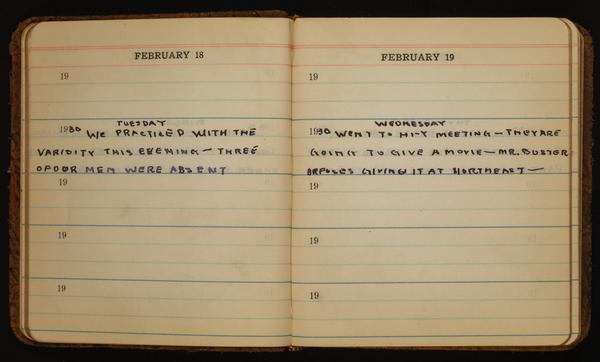 FEBRUARY 18
19
TUESDAY
1930 WE PRACTICED WITH THE
VARSITY THIS EVENING — THREE
OF OUR MEN WERE ABSENT
19
19
19
FEBRUARY 19
19
WEDNESDAY
1930 WENT TO HI-Y MEETING — THEY ARE
GOING TO GIVE A MOVIE — MR. BUSTER
OPPOSES GIVING IT AT NORTHEAST —
19
19
19